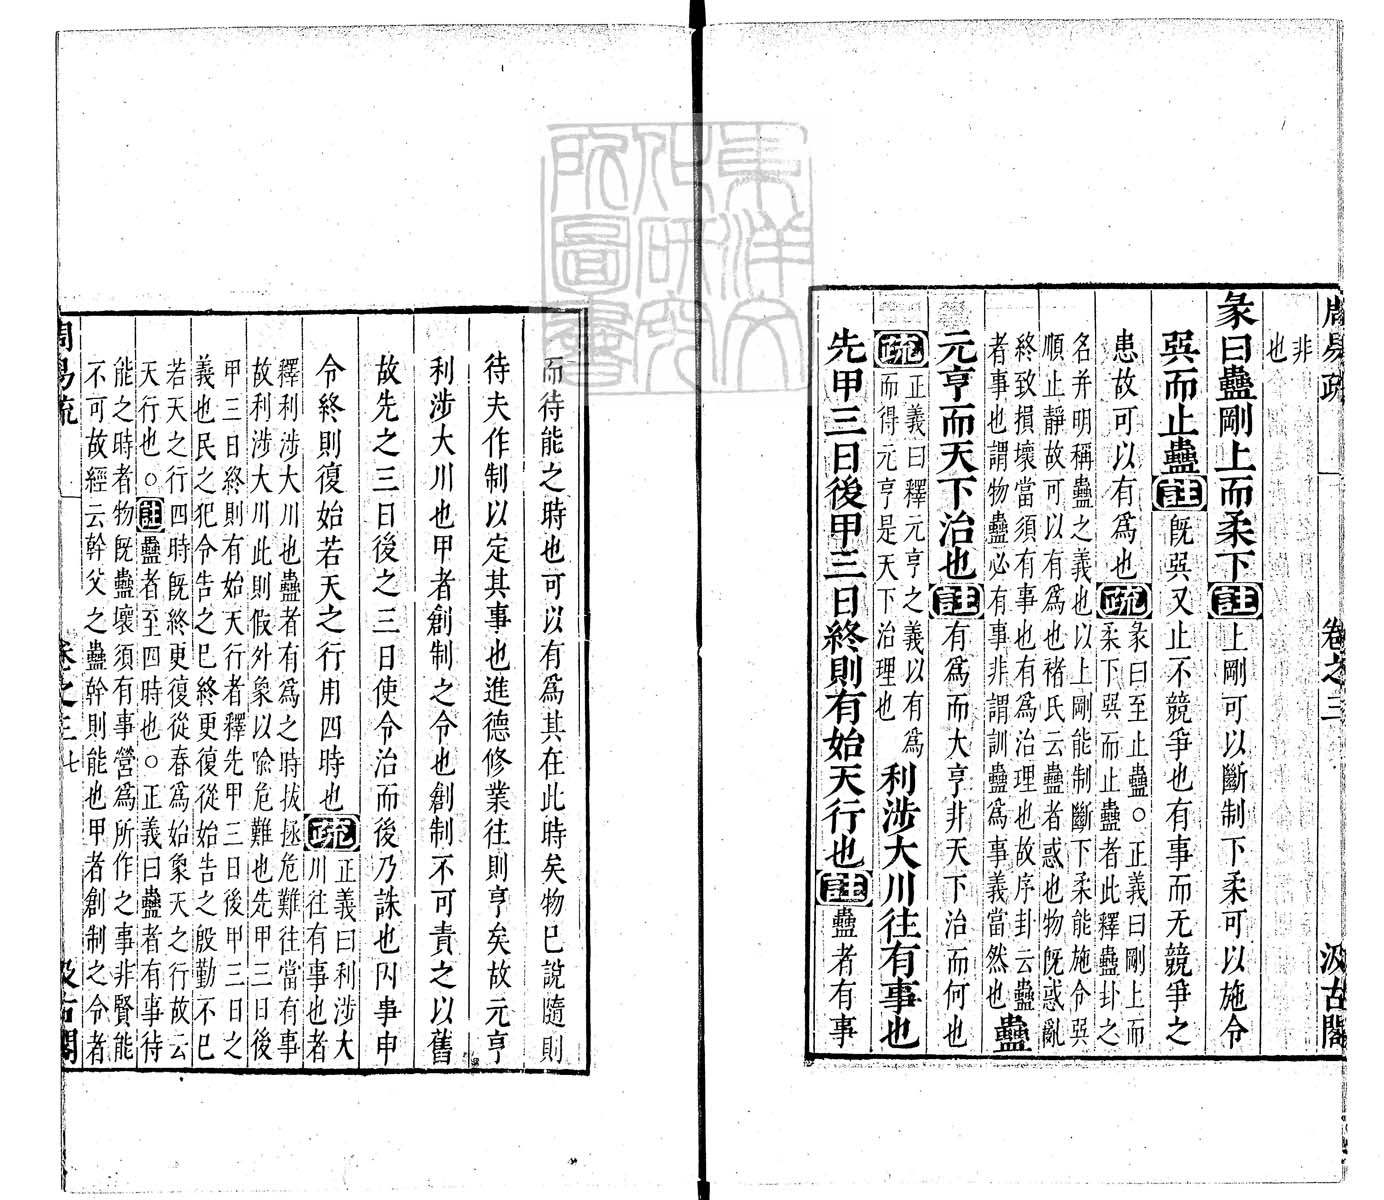 周易疏 卷之三 汲古閣
非
也
彖曰蠱剛上而柔下註上剛可以斷制下柔可以施令
巽而止蠱註旣巽又止不競爭也有事而无競爭之
患故可以有爲也疏
彖曰至止蠱○正義曰剛上而
柔下巽而止蠱者此釋蠱卦之
名并明稱蠱之義也以上剛能制斷下柔能施令巽
順止靜故可以有爲也褚氏云蠱者惑也物旣惑亂
終致損壞當須有事也有爲治理也故序卦云蠱
者事也謂物蠱必有事非謂訓蠱爲事義當然也
蠱
元亨而天下治也註有爲而大亨非天下治而何也
疏
正義曰釋元亨之義以有爲
而得元亨是天下治理也
利涉大川往有事也
先甲三日後甲三日終則有始天行也註蠱者有事
而待能之時也可以有爲其在此時矣物已說隨則
待夫作制以定其事也進德修業往則亨矣故元亨
利涉大川也甲者創制之令也創制不可責之以舊
故先之三日後之三日使令治而後乃誅也因事申
令終則復始若天之行用四時也疏
正義曰利涉大
川往有事也者
釋利涉大川也蠱者有爲之時拔拯危難往當有事
故利涉大川此則假外象以喻危難也先甲三日後
甲三日終則有始天行者釋先甲三日後甲三日之
義也民之犯令告之已終更復從始告之殷勤不已
若天之行四時旣終更復從春爲始象天之行故云
天行也○註蠱者至四時也○正義曰蠱者有事待
能之時者物旣蠱壞須有事營爲所作之事非賢能
不可故經云幹父之蠱幹則能也甲者創制之令者
周易疏 卷之三 七 汲古閣
東洋文化研究所圖書